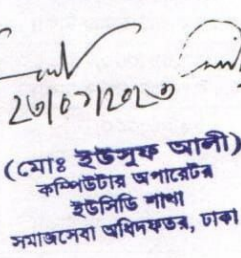 (মোঃ ইউসুফ আলী)
কম্পিউটার অপারেটর
ইউসিডি শাখা
সমাজসেবা অধিদফতর, ঢাকা